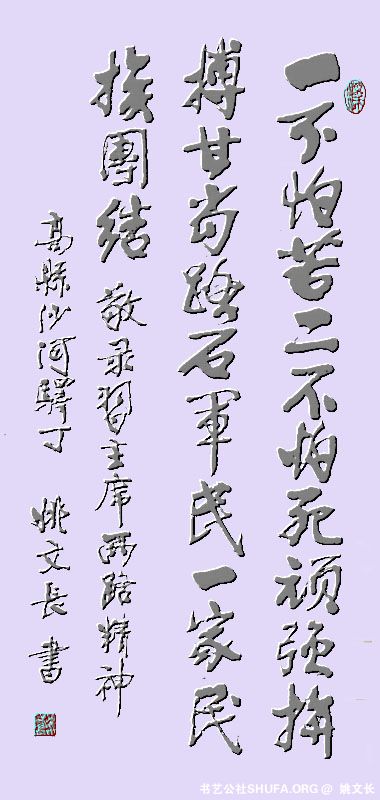 一不怕苦二不怕死顽强拚
搏甘当路石軍民一家民
族團结 敬录習主席两路精神
高縣沙河驛丁 姚文長 書
书艺公社SHUFA.ORG @ 姚文长